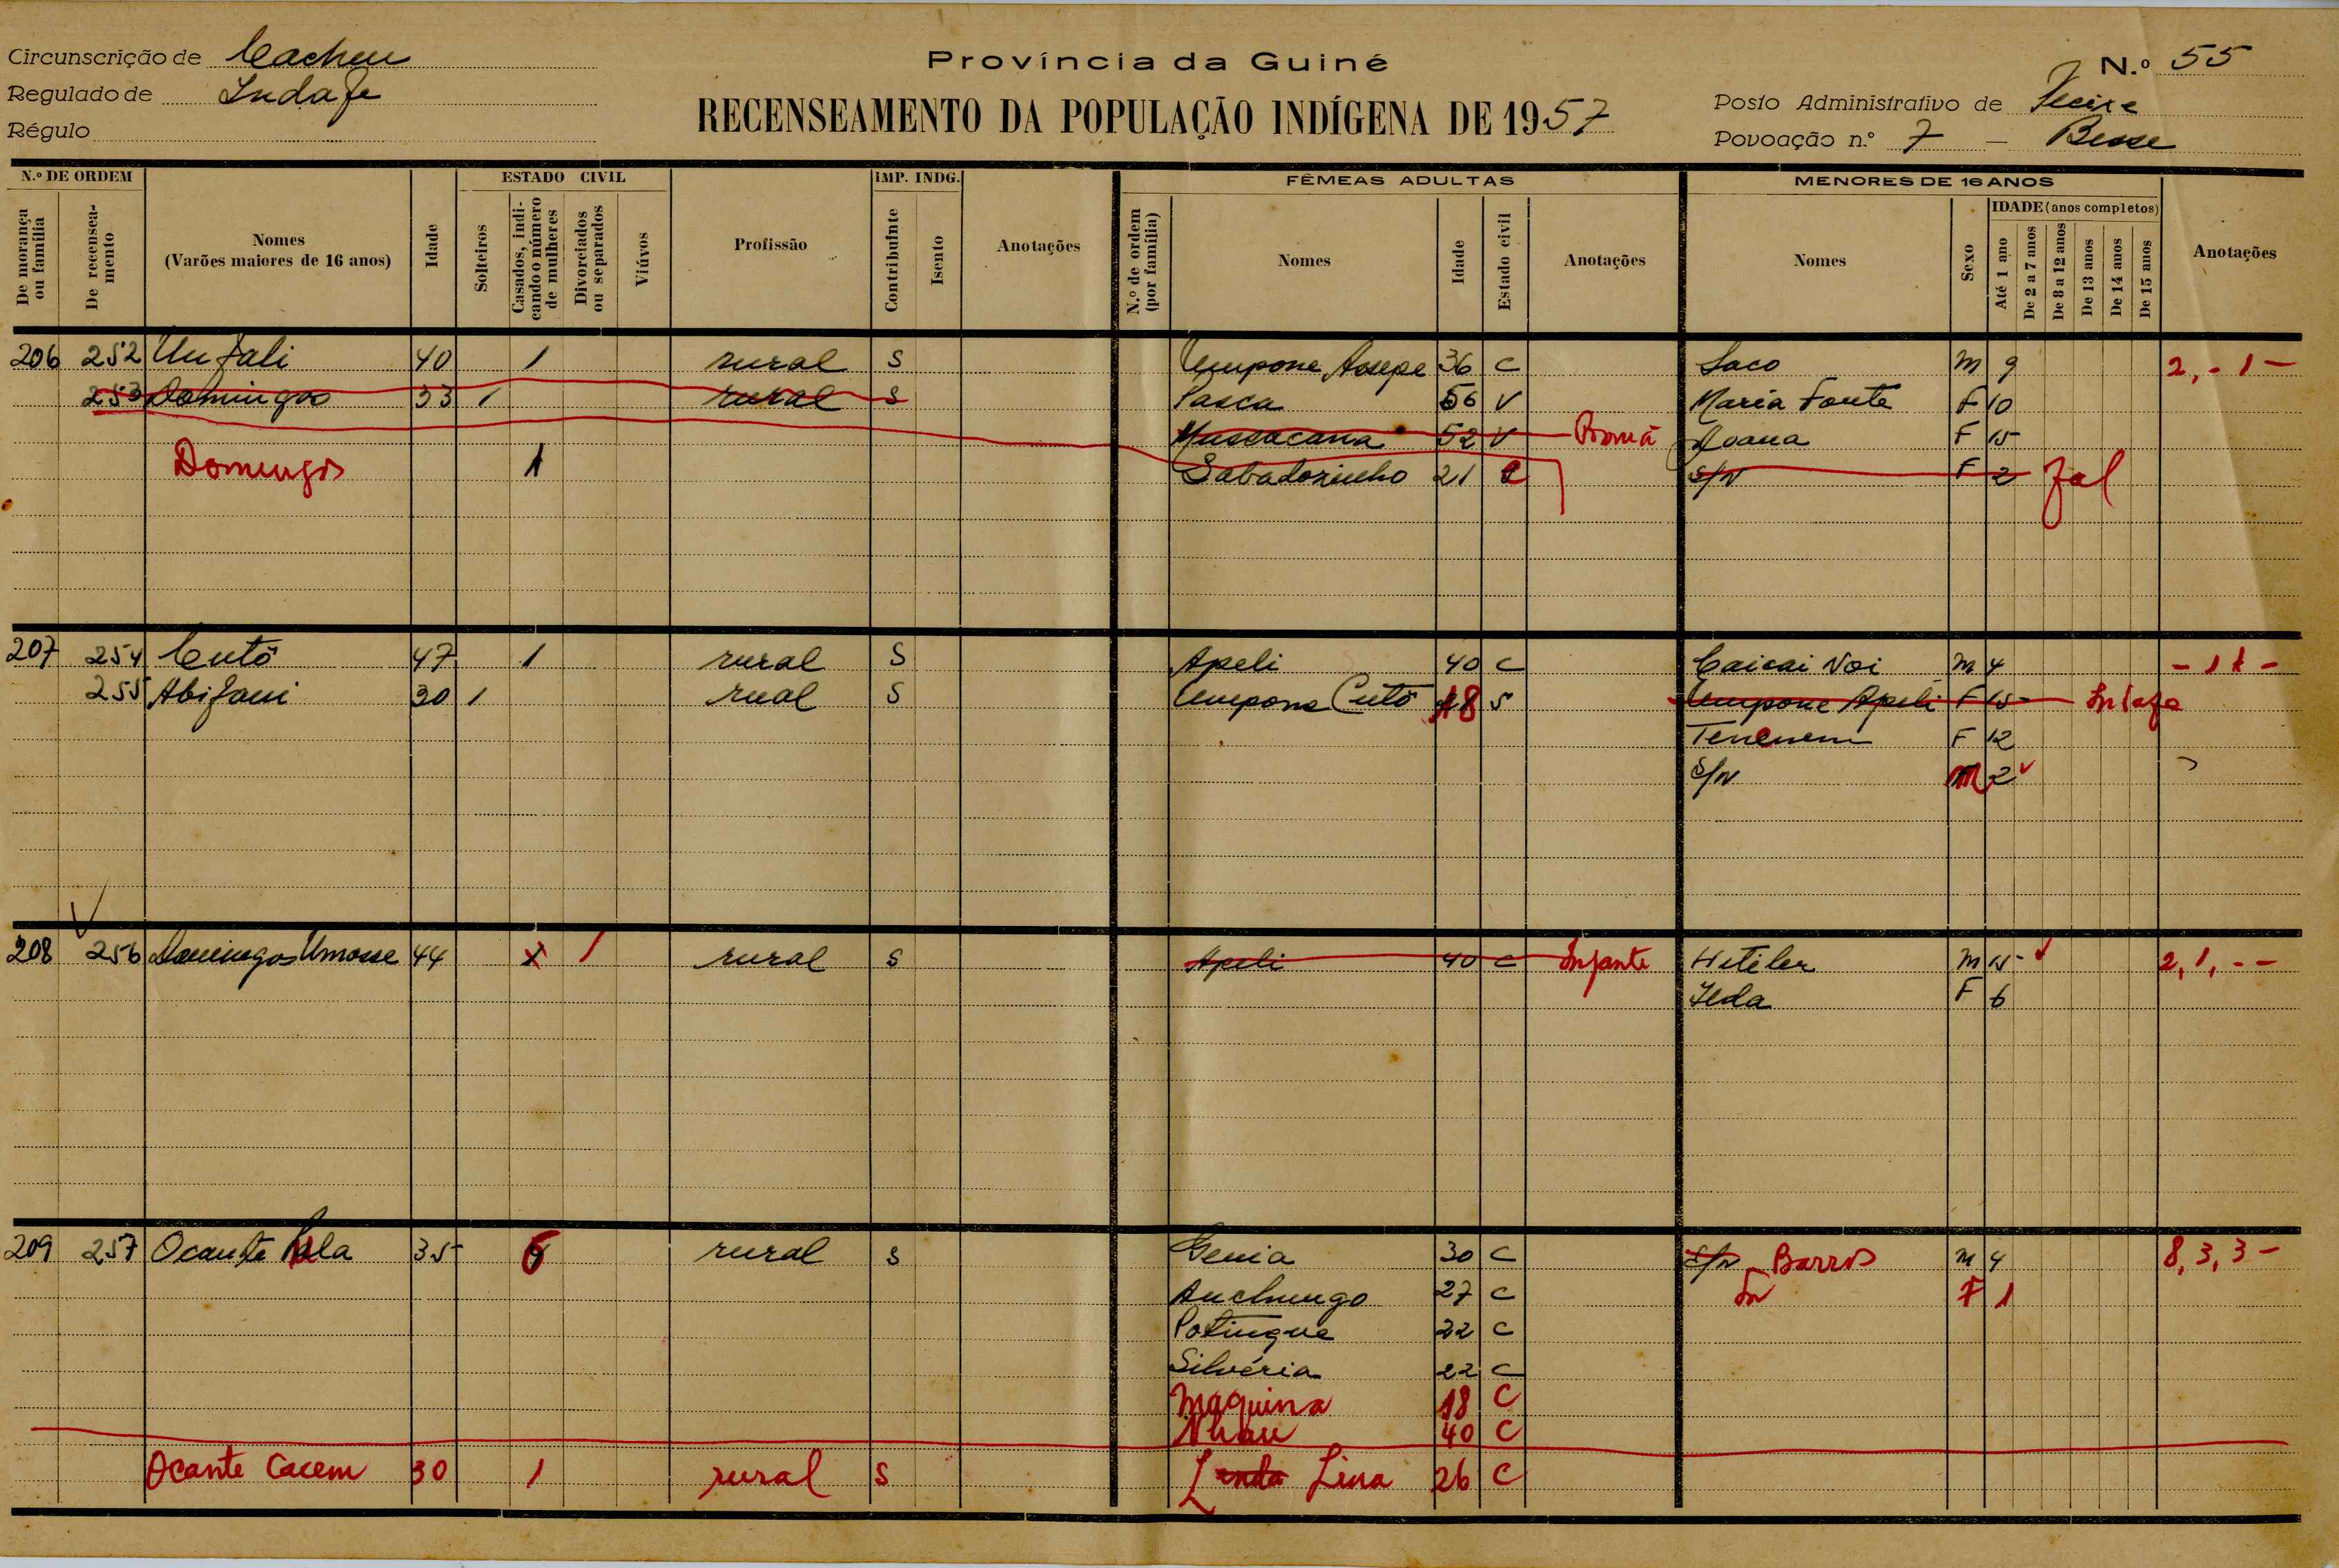 Circunscrição de Cacheu
Regulado de Indafe
Régulo
Província da Guiné
RECENSEAMENTO DA POPULAÇÃO INDÍGENA DE 1957
N.º 55
Posto Administrativo de
Povoação n.º 7 — Besse
N.º DE ORDEM
De morança ou família
De recenseamento
Nomes (Varões maiores de 16 anos)
Idade
ESTADO CIVIL
Solteiros
Casados, indicando o número de mulheres
Divorciados ou separados
Viúvos
Profissão
IMP. INDG.
Contribuinte
Isento
Anotações
FÊMEAS ADULTAS
N.º de ordem (por família)
Nomes
Idade
Estado civil
Anotações
MENORES DE 16 ANOS
Nomes
Sexo
IDADE (anos completos)
Até 1 ano
De 2 a 7 anos
De 8 a 12 anos
De 13 anos
De 14 anos
De 15 anos
Anotações
206 252 Unfali 40 1 rural S Umpone Assepe 36 C Saco M 9 2, - 1 -
253 Domingos 33 1 rural S Pasca 56 V Maria Fonte F 10
Mussacana 52 V F 15
Domingos 1 Sabadozinho 21 C S/N F 2 Fal
207 254 Cutô 47 1 rural S Apeli 40 C Caicai Voi M 4 - 1 1 -
255 Abifani 30 1 rual S Umpone Cutô 18 S Umpone Apeli F 15
Tenenem F 12
S/N M 2
208 256 Domingos Umosse 44 X 1 rural S Apeli 40 C Infante Hitiler M 15 2, 1, - -
Ilda F 6
209 257 Ocante 35 6 rural S Genia 30 C S/N Barros M 4 8, 3, 3 -
Anchungo 27 C Sn F 1
Potingue 22 C
Silvéria 22 C
Maquina 18 C
40 C
Ocante Cacem 30 1 rural S Lina 26 C